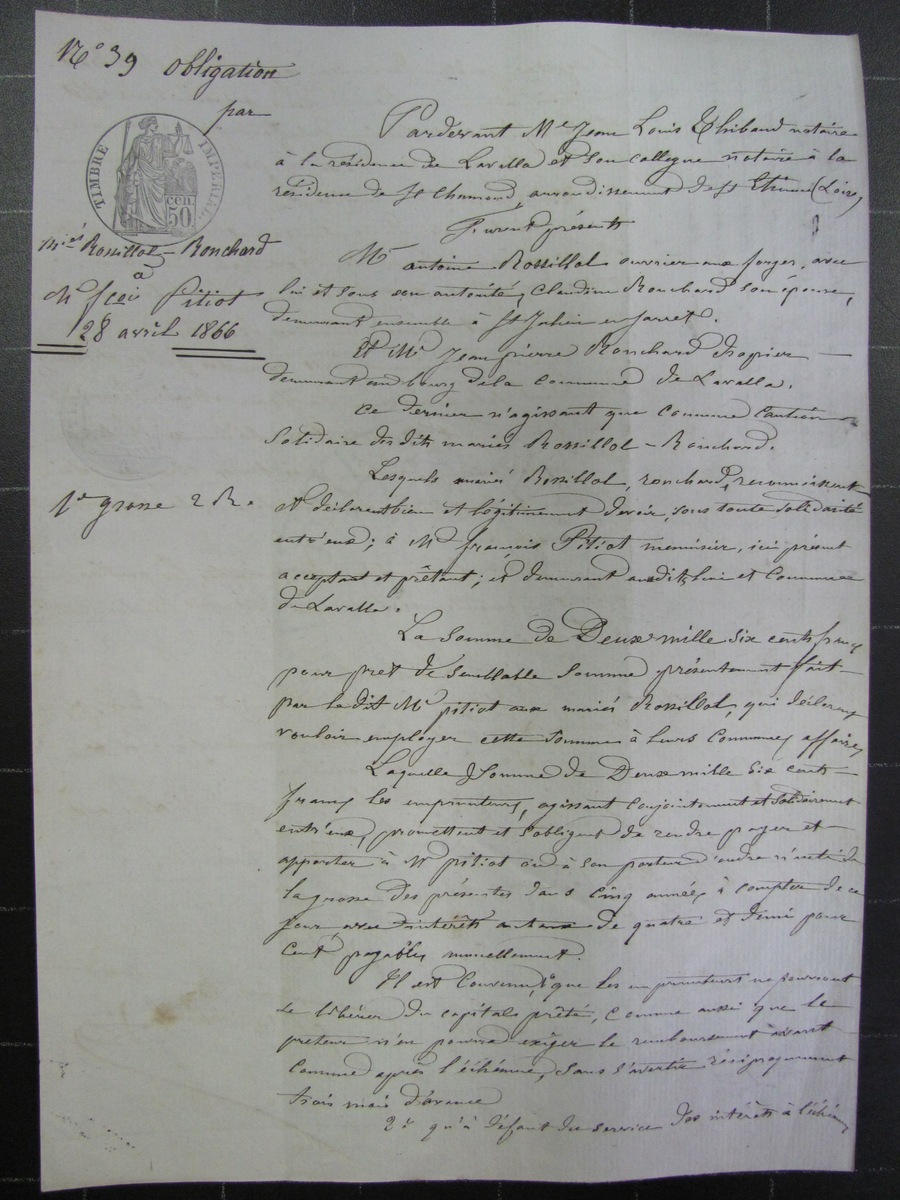 N° 39 obligation
par
TIMBRE IMPERIAL
50 cen.
Miés Rossillol-Ronchard
à
Mr fcois Pitiot
28 avril 1866
1re grosse 2 R.
Pardevant Me Jean Louis Thibaud notaire
à la résidence de Lavalla et son collegue notaire à la
résidence de St Chamond, arrondissement de St Etienne (Loire)
Furent présents
Mr antoine Rossillol ouvrier aux forges, avec
lui et sous son autorité, Claudine Ronchard son épouse,
demeurant ensemble à St Julien en Jarret.
Et Mr Jean pierre Ronchard
demeurant au bourg de la commune de Lavalla.
Ce dernier n'agissant que comme caution
solidaire des dits mariés Rossillol-Ronchard.
Lesquels mariés Rossillol, ronchard, reconnaissent
et déclarent bien et légitimement devoir, sous toute solidarité
entr'eux; à Mr françois Pitiot menuisier, ici présent
acceptant et prêtant; et demeurant audit lieu et commune
de Lavalla.
La somme de Deux mille six cents francs
pour pret de semblable somme présentement fait
par le dit Mr pitiot aux mariés Rossillol, qui déclarent
vouloir employer cette somme à leurs communes affaires
Laquelle somme de Deux mille six cents
francs les emprunteurs, agissant conjointement et solidairement
entr'eux, promettent et s'obligent de rendre payer et
apporter à Mr pitiot ou à son porteur d'ordre
la grosse des présentes dans cinq années à compter de ce
jour, avec intérêts au taux de quatre et demi pour
cent payables annuellement.
Il est convenu, 1° que les emprunteurs ne pourront
se libérer du capital prêté, comme aussi que le
preteur n'en pourra exiger le remboursement avant
comme après l'échéance, sans s'avertir réciproquement
trois mois d'avance
2° qu'à défaut du service des intérêts à l'échéance